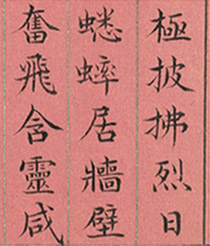 極披拂烈日
蟋蟀居牆壁
奮飛含靈咸